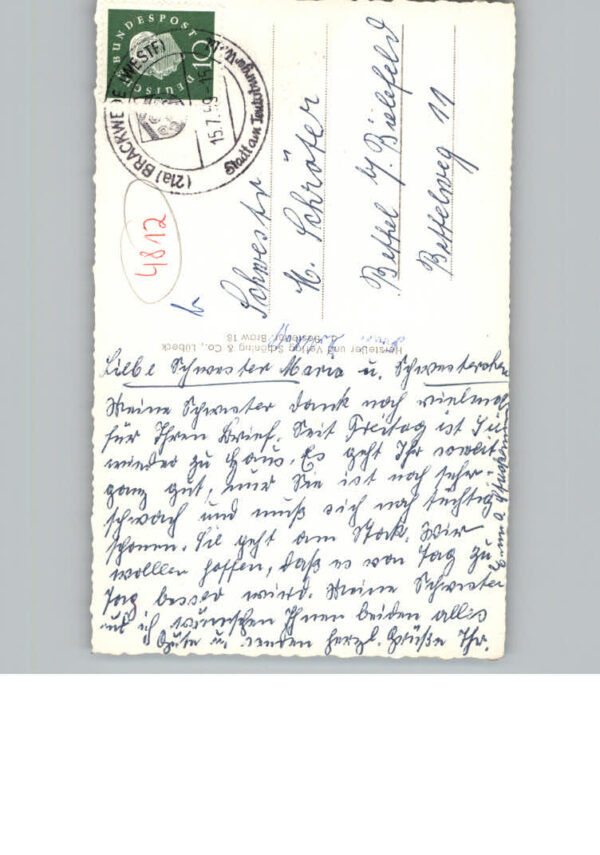 DEUTSCHE BUNDESPOST
10
(21a) BRACKWEDE (WESTF)
15.7.59-15
Stadt am Teutoburger Wald
4812
Schwester
M. Schröter
Bethel b/ Bielefeld
Bethelweg 11
Hersteller und Verlag Schöning & Co., Lübeck
Brow 18
Liebe Schwester Maria u. Schwesterchen
Meine Schwester dank noch vielmals
für Ihren Brief. Seit Freitag ist Sie
wieder zu Haus. Es geht Ihr soweit
ganz gut, nur Sie ist noch sehr
schwach und muß sich noch tüchtig
schonen. Sie geht am Stock. Wir
wolllen hoffen, daß es von Tag zu
Tag besser wird. Meine Schwester
und ich wünschen Ihnen beiden alles
Gute u. senden herzl. Grüße Ihr.